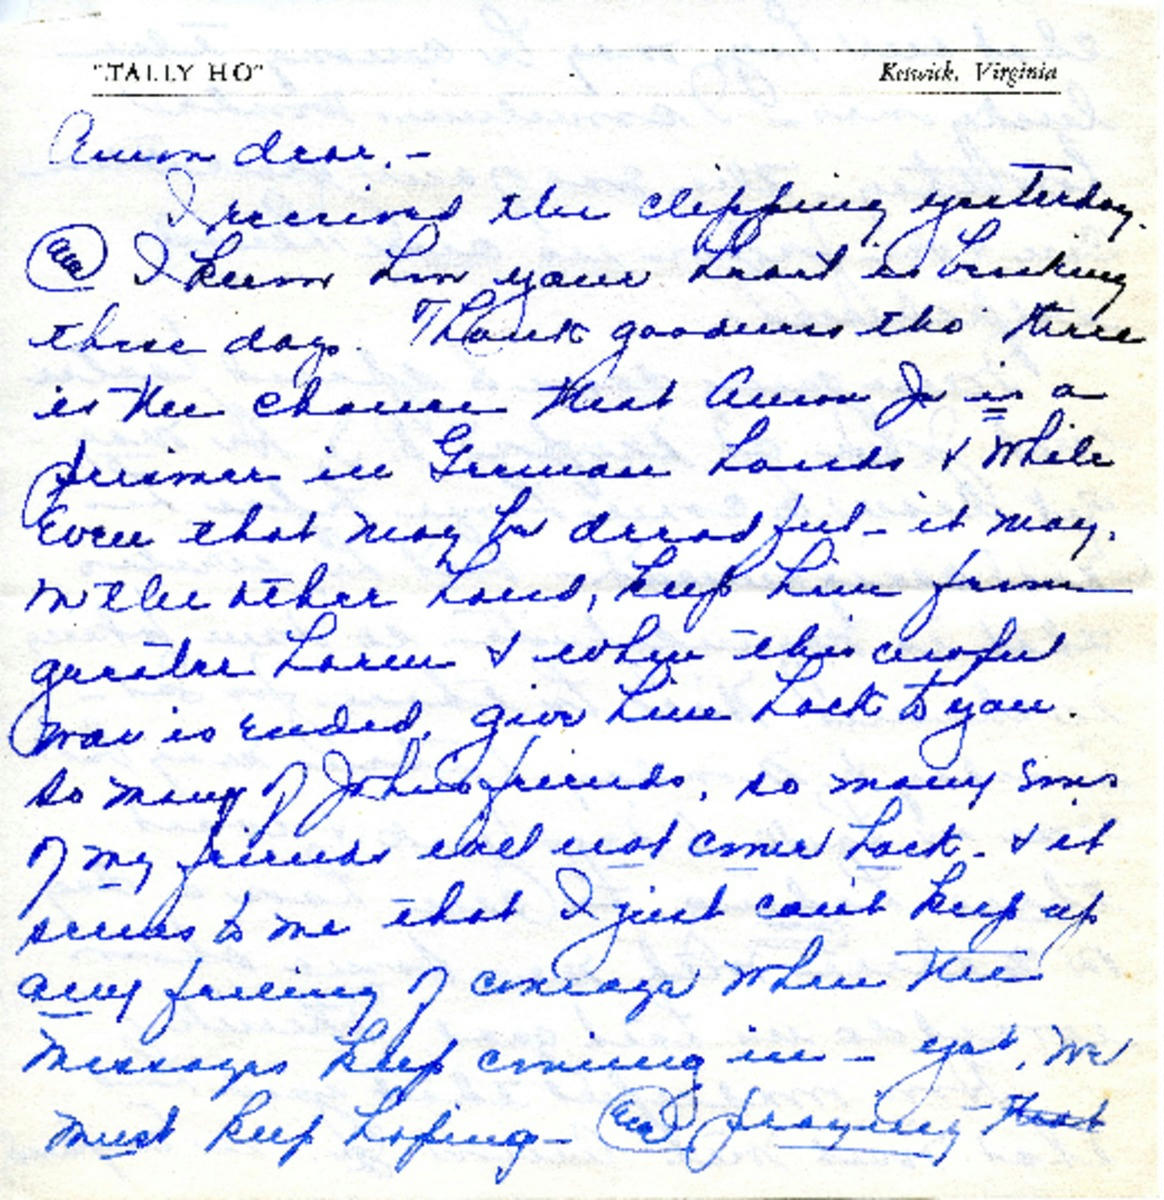 "TALLY HO"
Keswick, Virginia
Anson dear, -
I received the clipping yesterday.
and I know how your heart is breaking
these days. Thank goodness tho' there
is the chance that Anson Jr is a
prisoner in German hands & while
even that may be dreadful - it may,
on the other hand, keep him from
greater harm & when this awful
war is ended, give him back to you.
So many of John's friends, so many sons
of my friends will not come back - & it
seems to me that I just can't keep up
any feeling of courage when the
messages keep coming in - yet, we
must keep hoping - and praying - that